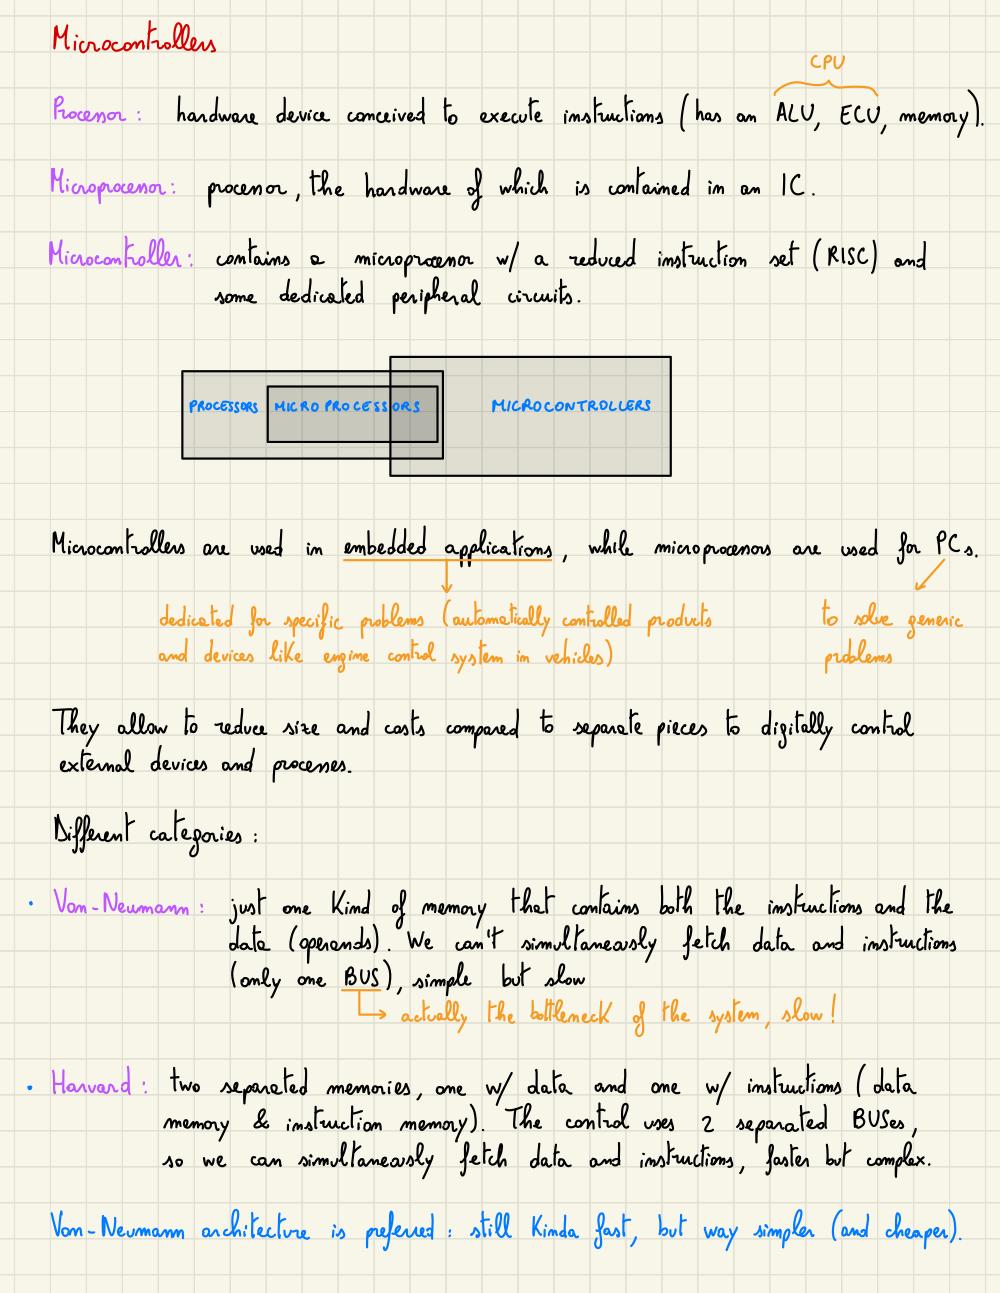 Microcontrollers
CPU
Processor: hardware device conceived to execute instructions (has an ALU, ECU, memory).
Microprocessor: processor, the hardware of which is contained in an IC.
Microcontroller: contains a microprocessor w/ a reduced instruction set (RISC) and
some dedicated peripheral circuits.
PROCESSORS MICROPROCESSORS MICROCONTROLLERS
Microcontrollers are used in embedded applications, while microprocessors are used for PCs.
dedicated for specific problems (automatically controlled products to solve generic
and devices like engine control system in vehicles) problems
They allow to reduce size and costs compared to separate pieces to digitally control
external devices and processes.
Different categories:
· Von-Neumann: just one kind of memory that contains both the instructions and the
data (operands). We can't simultaneously fetch data and instructions
(only one BUS), simple but slow
actually the bottleneck of the system, slow!
· Harvard: two separated memories, one w/ data and one w/ instructions (data
memory & instruction memory). The control uses 2 separated BUSes,
so we can simultaneously fetch data and instructions, faster but complex.
Von-Neumann architecture is preferred: still kinda fast, but way simpler (and cheaper).